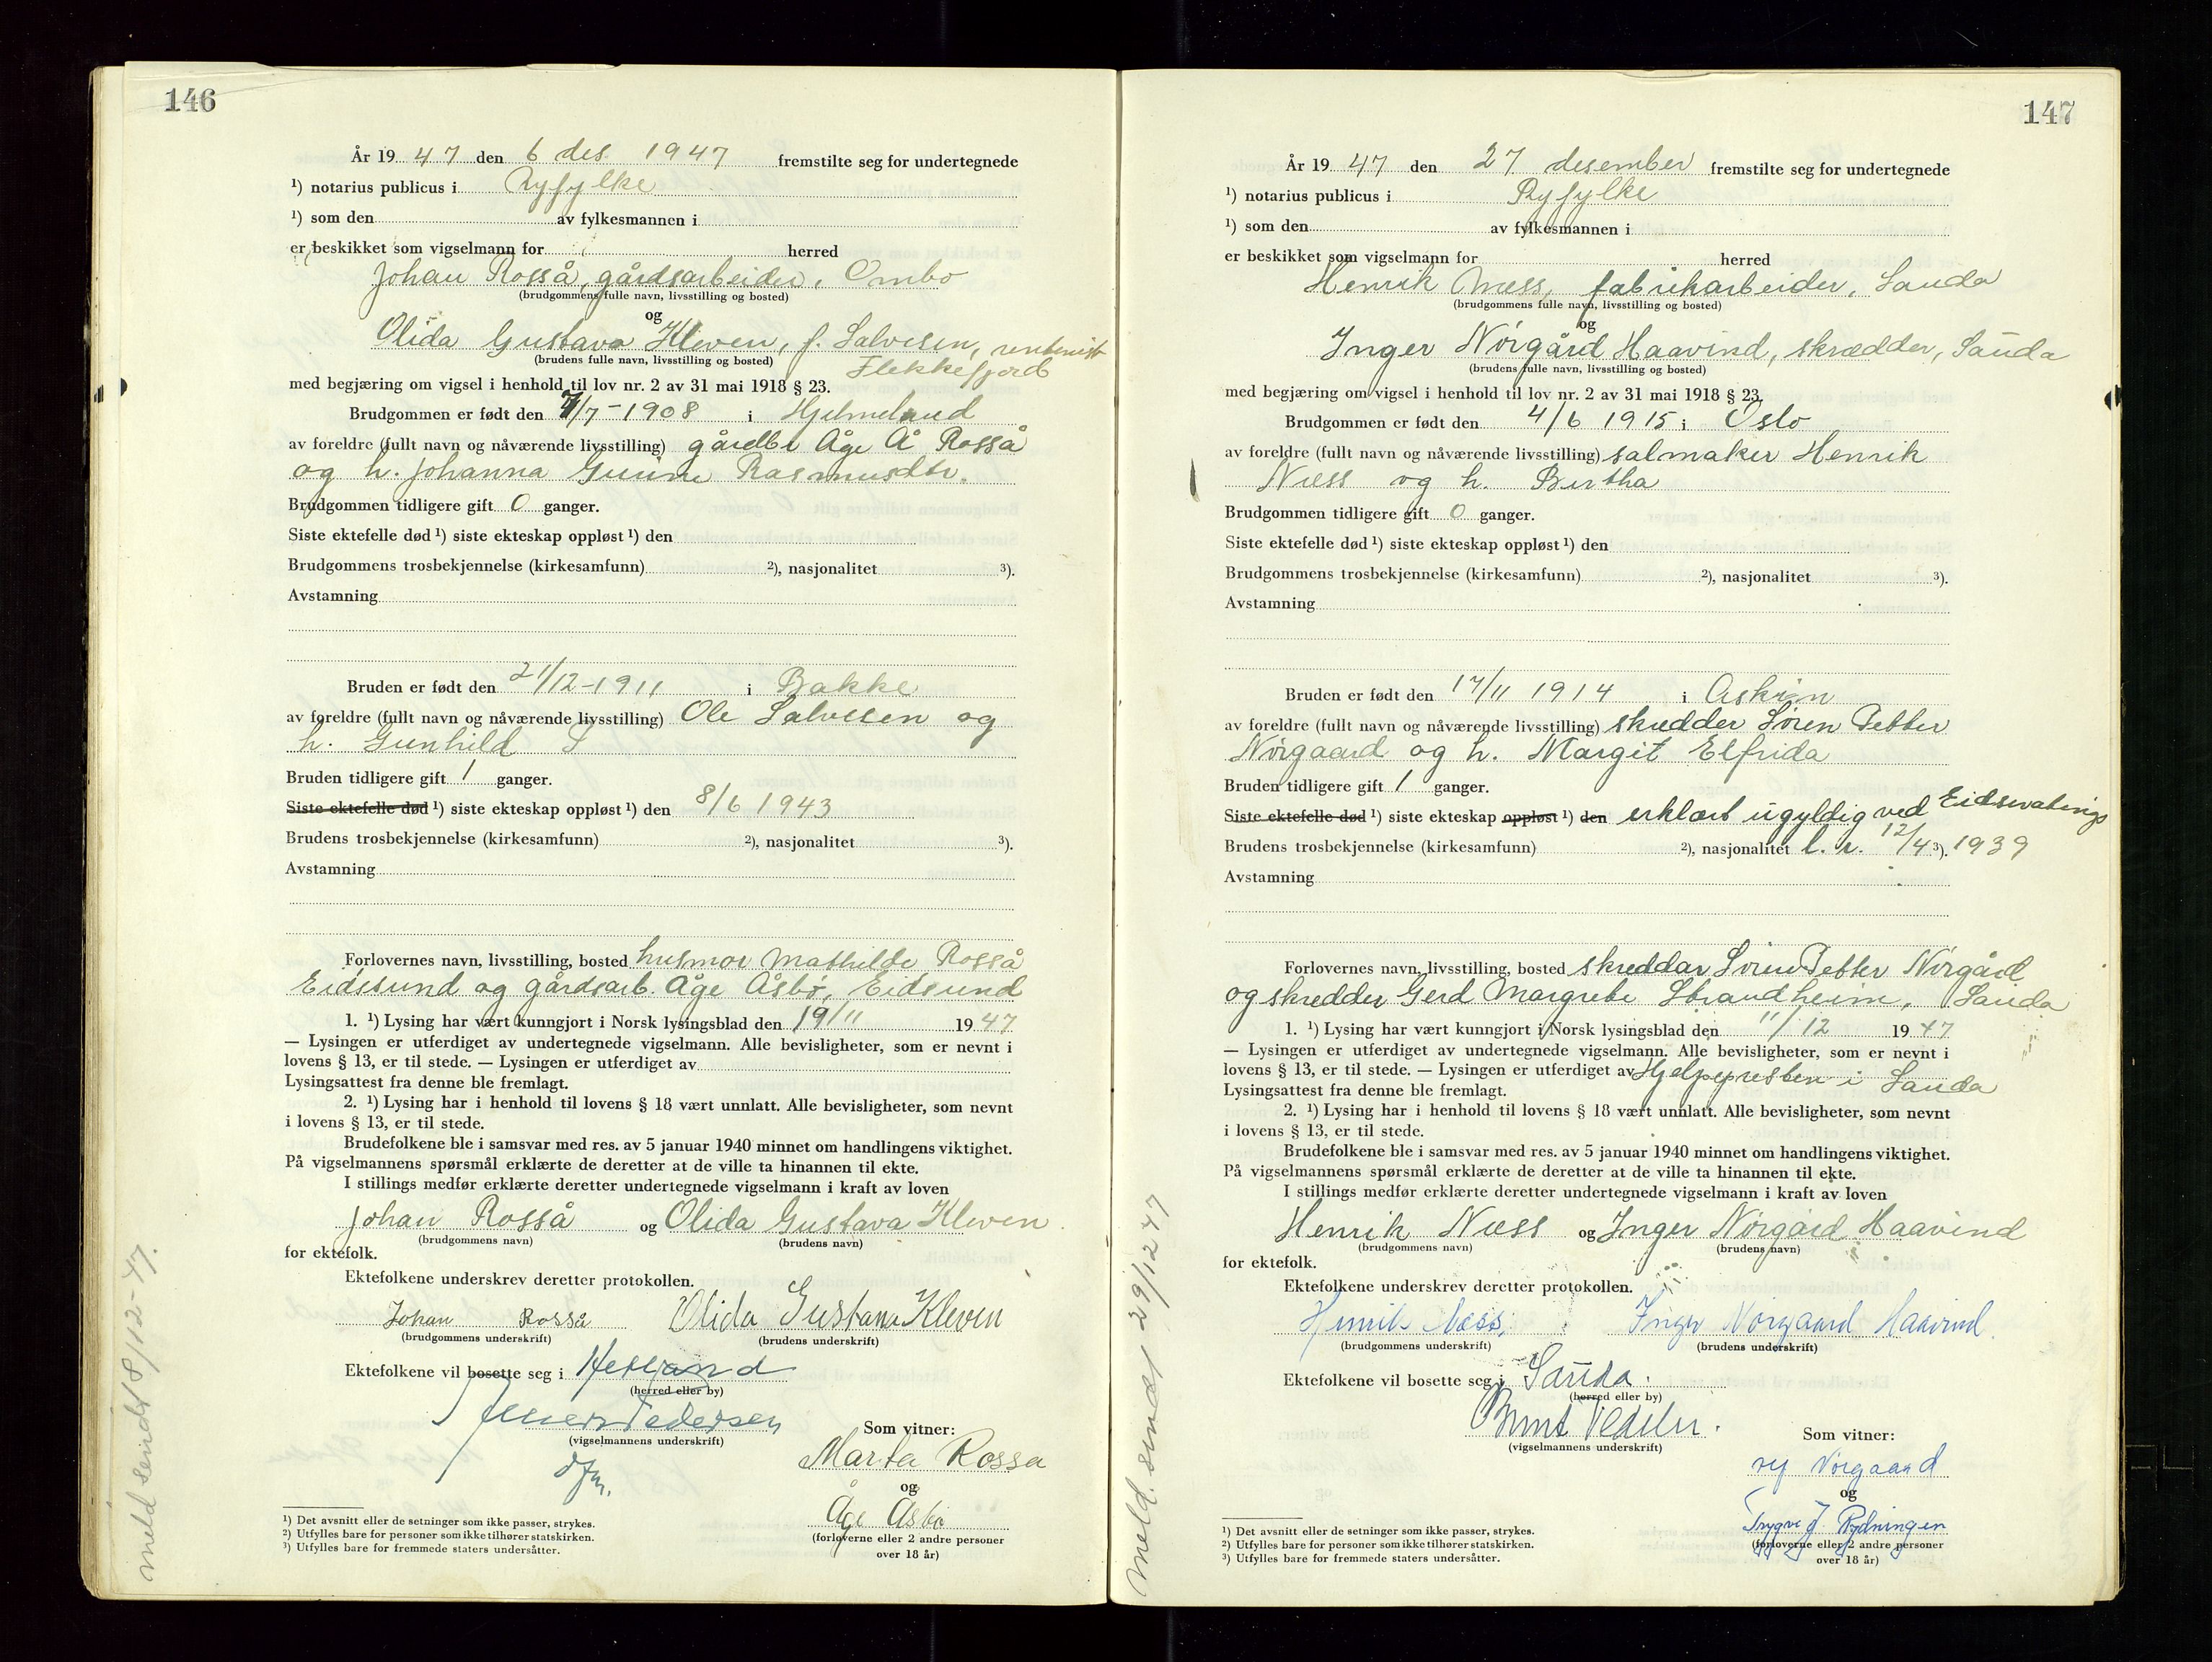 146
År 19 47 den 6 des. 1947 fremstilte seg for undertegnede
¹) notarius publicus i Ryfylke
¹) som den av fylkesmannen i
er beskikket som vigselmann for herred
Johan Rosså, gårdsarbeider, Ombo
(brudgommens fulle navn, livsstilling og bosted)
og
Olida Gustava Kleven, f. Salvesen,
(brudens fulle navn, livsstilling og bosted) Flekkefjord
med begjæring om vigsel i henhold til lov nr. 2 av 31 mai 1918 § 23.
Brudgommen er født den 7/7-1908 i Hjelmeland
av foreldre (fullt navn og nåværende livsstilling) gårdbr Åge Å Rosså
og h. Johanna Rasmusdtr.
Brudgommen tidligere gift 0 ganger.
Siste ektefelle død ¹) siste ekteskap oppløst ¹) den
Brudgommens trosbekjennelse (kirkesamfunn) ²), nasjonalitet ³).
Avstamning
Bruden er født den 21/12-1911 i Bakke
av foreldre (fullt navn og nåværende livsstilling) Ole Salvesen og
h. Gunhild S
Bruden tidligere gift 1 ganger.
Siste ektefelle død ¹) siste ekteskap oppløst ¹) den 8/6 1943
Brudens trosbekjennelse (kirkesamfunn) ²), nasjonalitet ³).
Avstamning
Forlovernes navn, livsstilling, bosted husmor Mathilde Rosså
Eidssund og gårdsarb. Åge Åsbø, Eidsund
1. ¹) Lysing har vært kunngjort i Norsk lysingsblad den 19/11 19 47
— Lysingen er utferdiget av undertegnede vigselmann. Alle bevisligheter, som er nevnt i
lovens § 13, er til stede. — Lysingen er utferdiget av
Lysingsattest fra denne ble fremlagt.
2. ¹) Lysing har i henhold til lovens § 18 vært unnlatt. Alle bevisligheter, som nevnt
i lovens § 13, er til stede.
Brudefolkene ble i samsvar med res. av 5 januar 1940 minnet om handlingens viktighet.
På vigselmannens spørsmål erklærte de deretter at de ville ta hinannen til ekte.
I stillings medfør erklærte deretter undertegnede vigselmann i kraft av loven
Johan Rosså og Olida Gustava Kleven
(brudgommens navn) (brudens navn)
for ektefolk.
Ektefolkene underskrev deretter protokollen.
Johan Rosså Olida Gustava Kleven
(brudgommens underskrift) (brudens underskrift)
Ektefolkene vil bosette seg i Hetland
(herred eller by)
Pedersen
(vigselmannens underskrift)
Som vitner:
Marta Rossa
og
Åge Åsbø
(forloverne eller 2 andre personer
over 18 år)
¹) Det avsnitt eller de setninger som ikke passer, strykes.
²) Utfylles bare for personer som ikke tilhører statskirken.
³) Utfylles bare for fremmede staters undersåtter.
meld sendt 8/12-47.
147
År 19 47 den 27 desember fremstilte seg for undertegnede
¹) notarius publicus i Ryfylke
¹) som den av fylkesmannen i
er beskikket som vigselmann for herred
Henrik Næss, fabrikarbeider, Sauda
(brudgommens fulle navn, livsstilling og bosted)
og
Inger Nörgård Haavind, skrædder, Sauda
(brudens fulle navn, livsstilling og bosted)
med begjæring om vigsel i henhold til lov nr. 2 av 31 mai 1918 § 23.
Brudgommen er født den 4/6 1915 i Oslo
av foreldre (fullt navn og nåværende livsstilling) salmaker Henrik
Næss og h. Bertha
Brudgommen tidligere gift 0 ganger.
Siste ektefelle død ¹) siste ekteskap oppløst ¹) den
Brudgommens trosbekjennelse (kirkesamfunn) ²), nasjonalitet ³).
Avstamning
Bruden er født den 17/11 1914 i Askim
av foreldre (fullt navn og nåværende livsstilling) skredder Sören Petter
Nörgaard og h. Margit Elfrida
Bruden tidligere gift 1 ganger.
Siste ektefelle død ¹) siste ekteskap oppløst ¹) den erklært ugyldig ved Eidsivatings
Brudens trosbekjennelse (kirkesamfunn) ²), nasjonalitet l. r. 12/4 ³). 1939
Avstamning
Forlovernes navn, livsstilling, bosted skreddar Sören Petter Nörgård
og skredder Gerd Margrete Strandheim, Sauda
1. ¹) Lysing har vært kunngjort i Norsk lysingsblad den 11/12 19 47
— Lysingen er utferdiget av undertegnede vigselmann. Alle bevisligheter, som er nevnt i
lovens § 13, er til stede. — Lysingen er utferdiget av Hjelpepresten i Sauda
Lysingsattest fra denne ble fremlagt.
2. ¹) Lysing har i henhold til lovens § 18 vært unnlatt. Alle bevisligheter, som nevnt
i lovens § 13, er til stede.
Brudefolkene ble i samsvar med res. av 5 januar 1940 minnet om handlingens viktighet.
På vigselmannens spørsmål erklærte de deretter at de ville ta hinannen til ekte.
I stillings medfør erklærte deretter undertegnede vigselmann i kraft av loven
Henrik Næss og Inger Nörgård Haavind
(brudgommens navn) (brudens navn)
for ektefolk.
Ektefolkene underskrev deretter protokollen.
Henrik Næss. Inger Nørgaard Haavind.
(brudgommens underskrift) (brudens underskrift)
Ektefolkene vil bosette seg i Sauda.
(herred eller by)
(vigselmannens underskrift)
Som vitner:
Nørgaard
og
Trygve J. Rydningen
(forloverne eller 2 andre personer
over 18 år)
¹) Det avsnitt eller de setninger som ikke passer, strykes.
²) Utfylles bare for personer som ikke tilhører statskirken.
³) Utfylles bare for fremmede staters undersåtter.
Meld. sendt 29/12 47